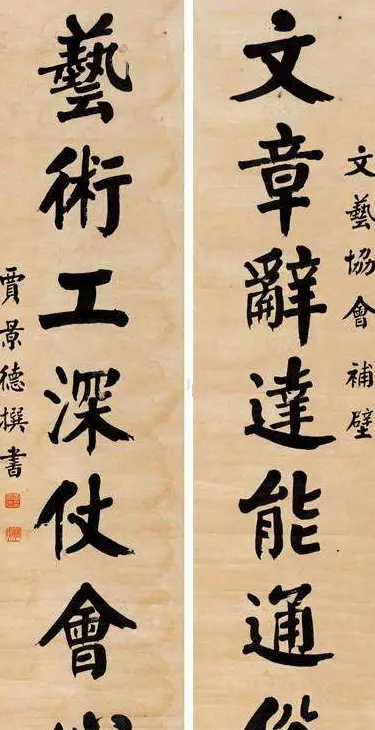 文藝協會 補壁
文章辭達能通俗
藝術工深仗會
賈景德撰書